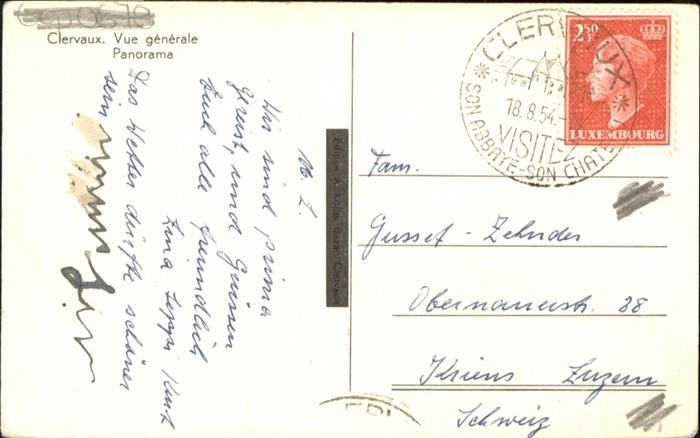 Clervaux. Vue générale
Panorama
M. L.
Wir sind prima
gereist, und Grüssen
Euch alle freundlich
Das Wetter dürfte schöner
sein
CLERVAUX
18.8.54
VISITEZ
SON ABBAYE-SON CHATE
2.50
F.
LUXEMBOURG
Fam.
Gusset-Zehnder
Obernauerstr. 38
Kriens Luzern
Schweiz